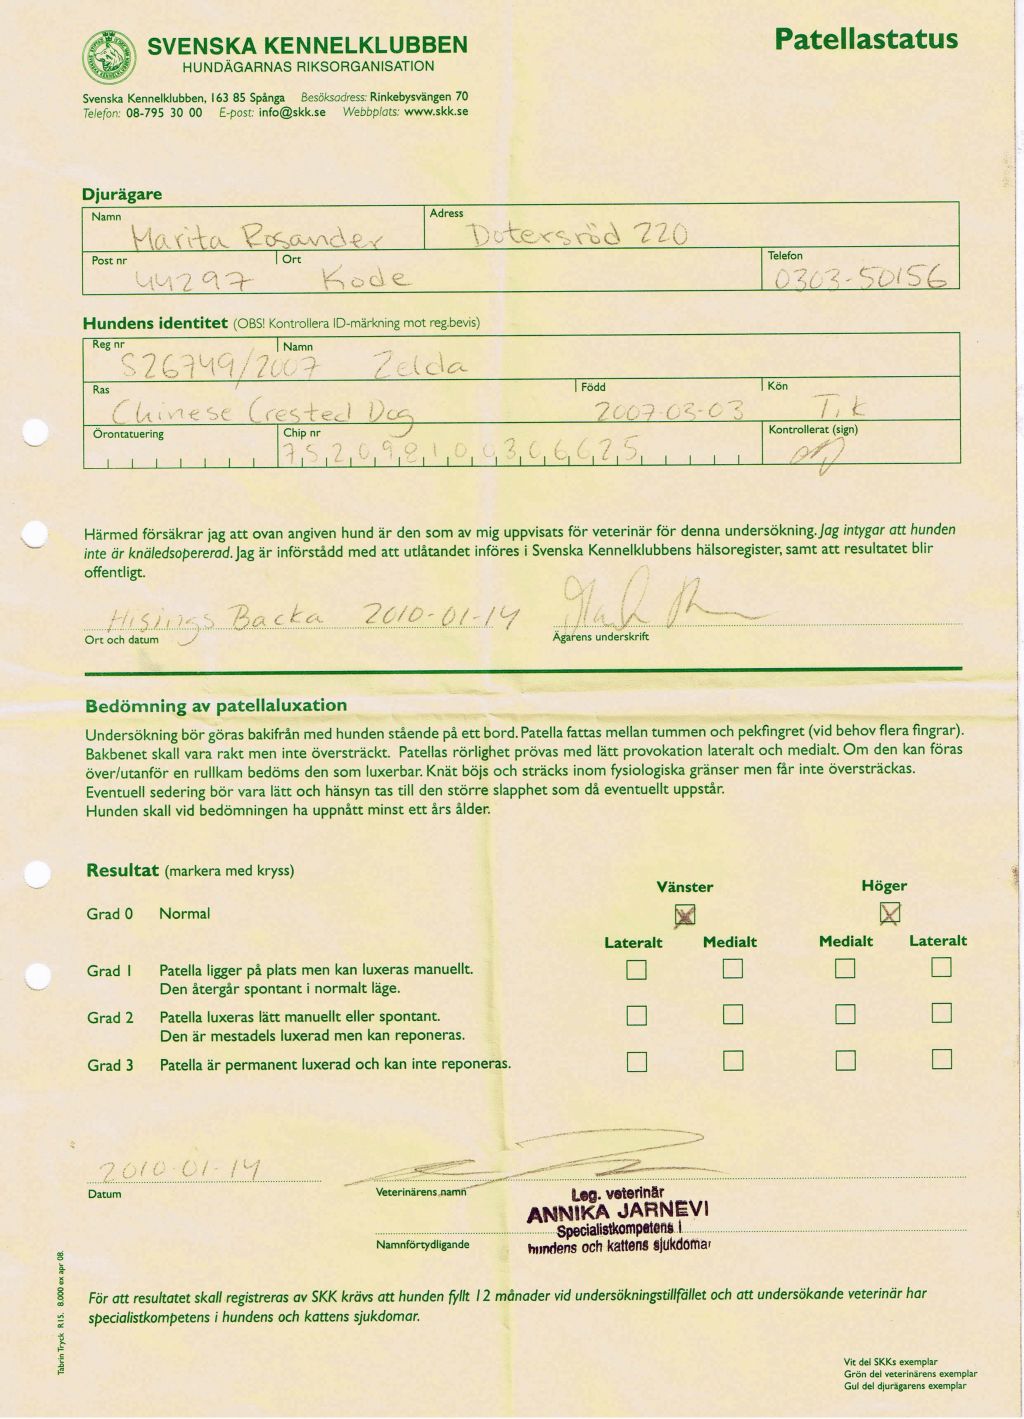 SVENSKA KENNELKLUBBEN
HUNDÄGARNAS RIKSORGANISATION
Patellastatus
Svenska Kennelklubben, 163 85 Spånga Besöksadress: Rinkebysvängen 70
Telefon: 08-795 30 00 E-post: info@skk.se Webbplats: www.skk.se
Djurägare
Namn Adress
Marita Rosander Dotersröd 220
Post nr Ort Telefon
44297 Kode 0303-50156
Hundens identitet (OBS! Kontrollera ID-märkning mot reg.bevis)
Reg nr Namn
S26749/2007 Zelda
Ras Född Kön
Chinese Crested Dog 2007-03-03 Tik
Örontatuering Chip nr Kontrollerat (sign)
752098100306625
Härmed försäkrar jag att ovan angiven hund är den som av mig uppvisats för veterinär för denna undersökning. Jag intygar att hunden
inte är knäledsopererad. Jag är införstådd med att utlåtandet införes i Svenska Kennelklubbens hälsoregister, samt att resultatet blir
offentligt.
Hisings Backa 2010-01-14
Ort och datum Ägarens underskrift
Bedömning av patellaluxation
Undersökning bör göras bakifrån med hunden stående på ett bord. Patella fattas mellan tummen och pekfingret (vid behov flera fingrar).
Bakbenet skall vara rakt men inte översträckt. Patellas rörlighet prövas med lätt provokation lateralt och medialt. Om den kan föras
över/utanför en rullkam bedöms den som luxerbar. Knät böjs och sträcks inom fysiologiska gränser men får inte översträckas.
Eventuell sedering bör vara lätt och hänsyn tas till den större slapphet som då eventuellt uppstår.
Hunden skall vid bedömningen ha uppnått minst ett års ålder.
Resultat (markera med kryss)
Vänster Höger
Grad 0 Normal
Lateralt Medialt Medialt Lateralt
Grad 1 Patella ligger på plats men kan luxeras manuellt.
Den återgår spontant i normalt läge.
Grad 2 Patella luxeras lätt manuellt eller spontant.
Den är mestadels luxerad men kan reponeras.
Grad 3 Patella är permanent luxerad och kan inte reponeras.
2010-01-14
Datum Veterinärens namn
Leg. veterinär
ANNIKA JARNEVI
Specialistkompetens i
hundens och kattens sjukdomar
Namnförtydligande
För att resultatet skall registreras av SKK krävs att hunden fyllt 12 månader vid undersökningstillfället och att undersökande veterinär har
specialistkompetens i hundens och kattens sjukdomar.
Tabrin Tryck R15. 8.000 ex apr 08.
Vit del SKKs exemplar
Grön del veterinärens exemplar
Gul del djurägarens exemplar